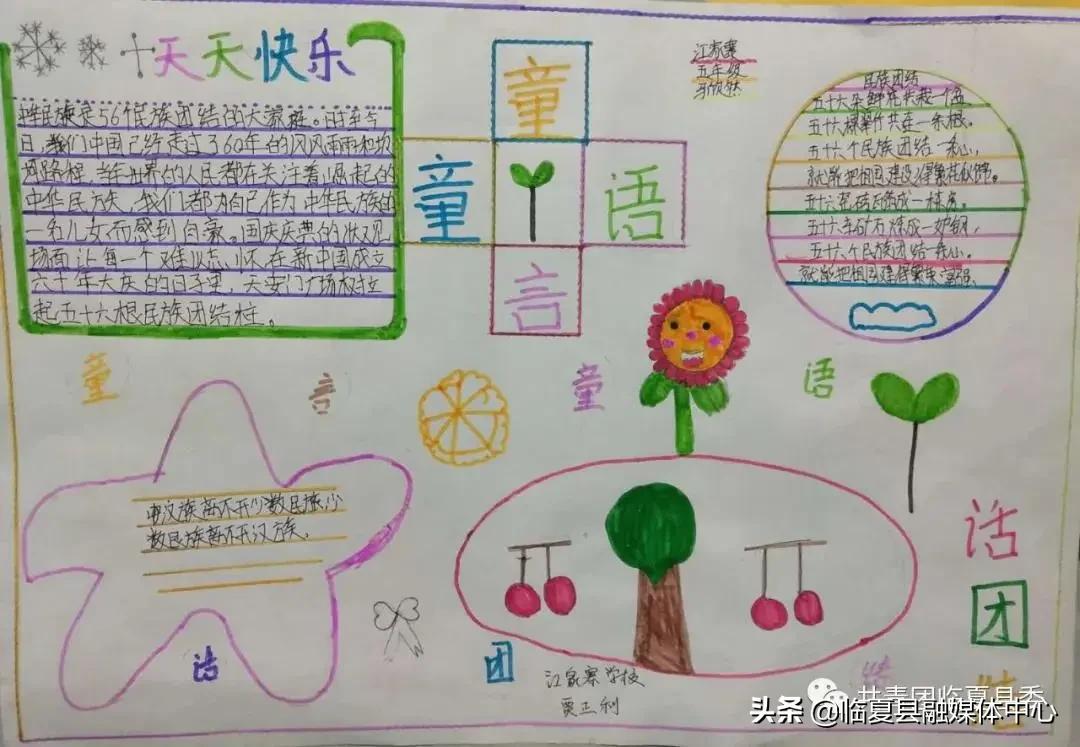 天天快乐
中华民族是56个民族团结的大家庭。时至今
日,我们中国已经走过了60年的风风雨雨和坎
坷路程,当年世界的人民都在关注着崛起的
中华民族,我们都为自己作为中华民族的
一名儿女而感到自豪。国庆庆典的壮观
场面让每一个人难以忘怀在新中国成立
六十年大庆的日子里,天安门广场权拉
起五十六根民族团结柱。
童
童
语
言
江家寨
五年级
民族团结
五十六朵鲜花共栽一个盆
五十六棵翠竹共连一条根。
五十六个民族团结一条心,
就能把祖国建设得繁花似锦。
五十六
五十六
五十六个民族团结一条心。
就能把祖国建得繁荣富强
童
言
童
语
汉族离不开少数民族少
数民族离不开汉族。
话
团
话
团
结
结
江家寨学校
贾正利
共青团临夏县委
头条 @临夏县融媒体中心